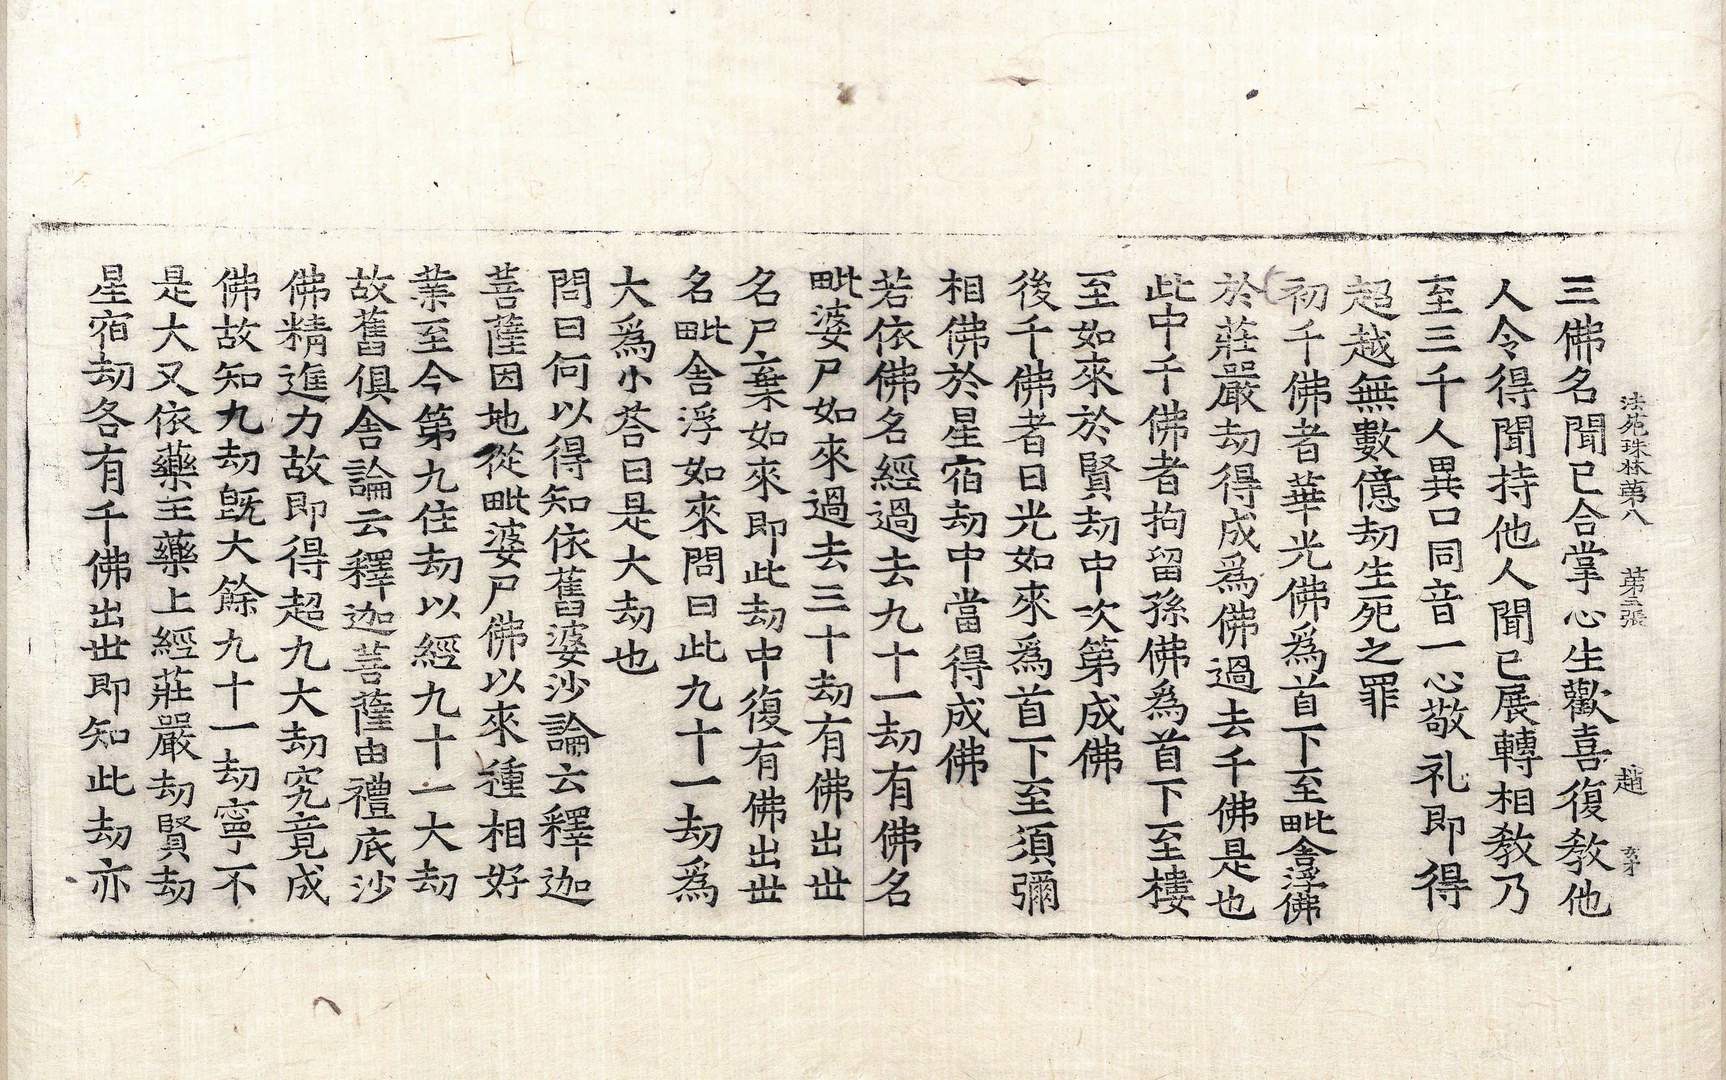 法苑珠林第八 第三張 趙 玄才
三佛名聞已合掌心生歡喜復教他
人令得聞持他人聞已展轉相教乃
至三千人異口同音一心敬礼即得
超越無數億劫生死之罪
初千佛者華光佛爲首下至毗舍浮佛
於莊嚴劫得成爲佛過去千佛是也
此中千佛者拘留孫佛爲首下至樓
至如來於賢劫中次第成佛
後千佛者日光如來爲首下至須彌
相佛於星宿劫中當得成佛
若依佛名經過去九十一劫有佛名
毗婆尸如來過去三十劫有佛出世
名尸棄如來即此劫中復有佛出世
名毗舍浮如來問曰此九十一劫爲
大爲小荅曰是大劫也
問曰何以得知依舊婆沙論云釋迦
菩薩因地從毗婆尸佛以來種相好
業至今第九住劫以經九十一大劫
故舊俱舍論云釋迦菩薩由禮底沙
佛精進力故即得超九大劫究竟成
佛故知九劫旣大餘九十一劫寧不
是大又依藥王藥上經莊嚴劫賢劫
星宿劫各有千佛出世即知此劫亦